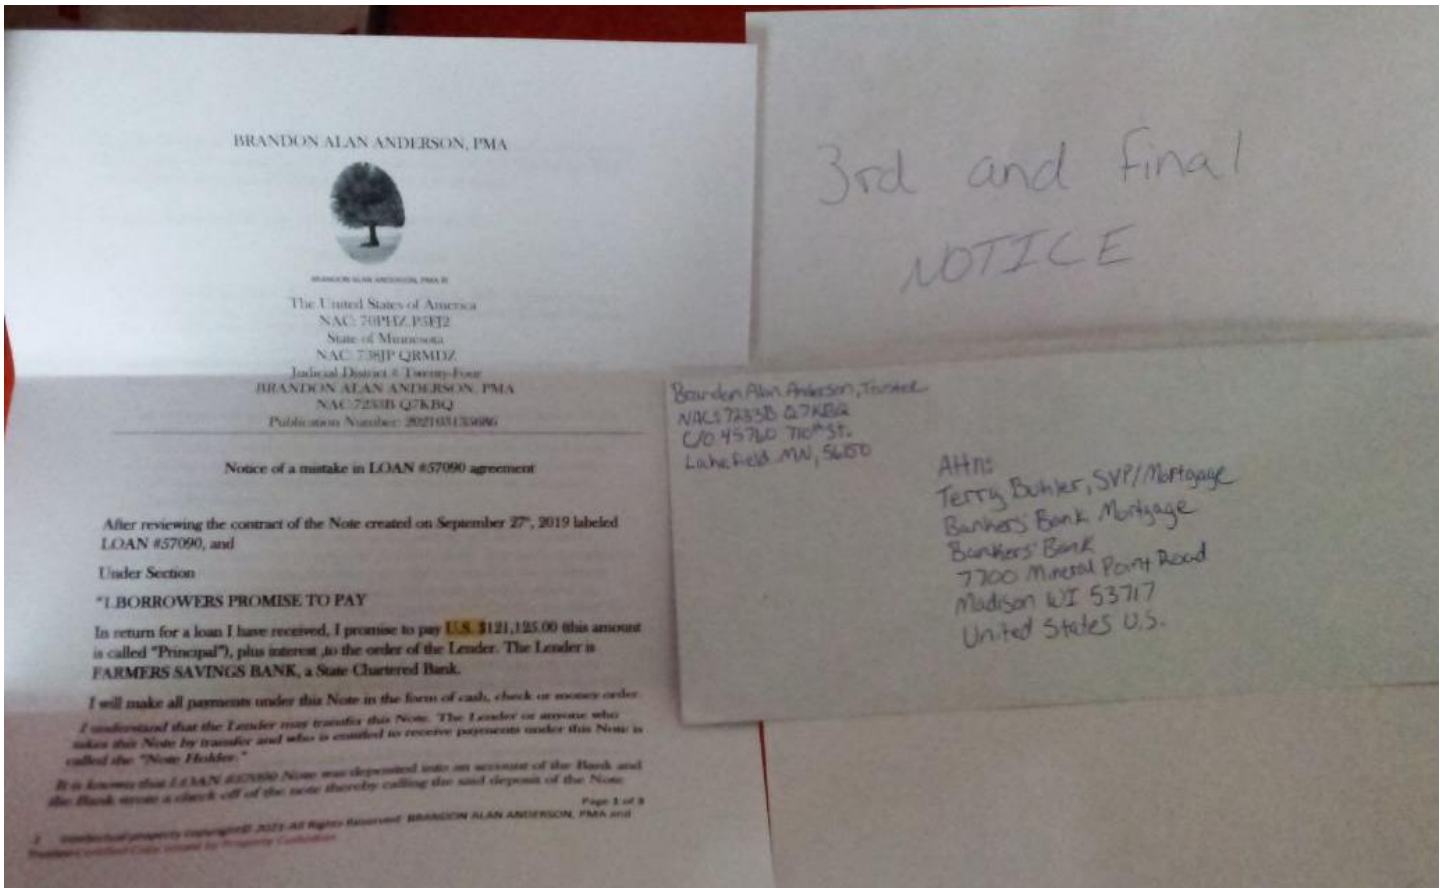 BRANDON ALAN ANDERSON, PMA
BRANDON ALAN ANDERSON, PMA
The United States of America
NAC: 70PHZ P5FJ2
State of Minnesota
NAC: 738JP QRMDZ
Judicial District # Twenty-Four
BRANDON ALAN ANDERSON, PMA
NAC:7233B Q7KBQ
Publication Number: 202103135686
Notice of a mistake in LOAN #57090 agreement
After reviewing the contract of the Note created on September 27", 2019 labeled
LOAN #57090, and
Under Section
"1.BORROWERS PROMISE TO PAY
In return for a loan I have received, I promise to pay U.S. $121,125.00 (this amount
is called "Principal"), plus interest ,to the order of the Lender. The Lender is
FARMERS SAVINGS BANK, a State Chartered Bank.
I will make all payments under this Note in the form of cash, check or money order.
I understand that the Lender may transfer this Note. The Lender or anyone who
takes this Note by transfer and who is entitled to receive payments under this Note is
called the "Note Holder."
It is known that LOAN #57090 Note was deposited into an account of the Bank and
the Bank wrote a check off of the note thereby calling the said deposit of the Note
Page 1 of 3
Intellectual property copyright© 2021-All Rights Reserved BRANDON ALAN ANDERSON, PMA and
Trustee Certified Copy issued by Property Custodian
3rd and final
NOTICE
Brandon Alan Anderson, Trustee
NAC: 7233B Q7KBQ
C/O 45760 710th St.
Lakefield MN, 56150
Attn:
Terry Buhler, SVP/Mortgage
Bankers' Bank Mortgage
Bankers' Bank
7700 Mineral Point Road
Madison WI 53717
United States U.S.